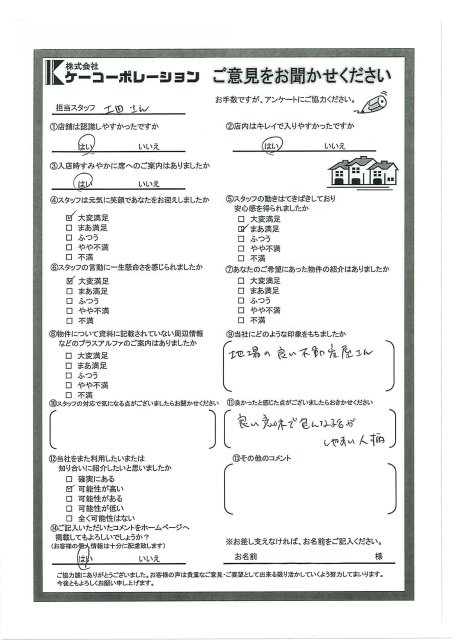 株式会社
ケーコーポレーション
ご意見をお聞かせください
担当スタッフ 工田さん
お手数ですが、アンケートにご協力ください。
①店舗は認識しやすかったですか
はい いいえ
②店内はキレイで入りやすかったですか
はい いいえ
③入店時すみやかに席へのご案内はありましたか
はい いいえ
④スタッフは元気に笑顔であなたをお迎えしましたか
大変満足
まあ満足
ふつう
やや不満
不満
⑤スタッフの動きはてきぱきしており
安心感を得られましたか
大変満足
まあ満足
ふつう
やや不満
不満
⑥スタッフの言動に一生懸命さを感じられましたか
大変満足
まあ満足
ふつう
やや不満
不満
⑦あなたのご希望にあった物件の紹介はありましたか
大変満足
まあ満足
ふつう
やや不満
不満
⑧物件について資料に記載されていない周辺情報
などのプラスアルファのご案内はありましたか
大変満足
まあ満足
ふつう
やや不満
不満
⑨当社にどのような印象をもちましたか
地場の良い不動産屋さん
⑩スタッフの対応で気になる点がございましたらお聞かせください
⑪良かったと感じた点がございましたらおきかせください
良い意味で
しやすい人柄
⑫当社をまた利用したいまたは
知り合いに紹介したいと思いましたか
確実にある
可能性が高い
可能性がある
可能性が低い
全く可能性はない
⑬その他のコメント
⑭ご記入いただいたコメントをホームページへ
掲載してもよろしいでしょうか？
(お客様の個人情報は十分に配慮致します)
はい いいえ
※お差し支えなければ、お名前をご記入ください。
お名前 様
ご協力誠にありがとうございました。お客様の声は貴重なご意見・ご要望として出来る限り活かしていくよう努力してまいります。
今後ともよろしくお願い申し上げます。